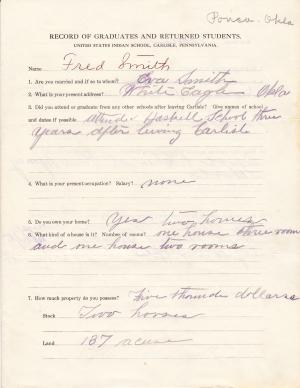 Ponca - Okla
RECORD OF GRADUATES AND RETURNED STUDENTS.
UNITED STATES INDIAN SCHOOL, CARLISLE, PENNSYLVANIA.
Name Fred Smith
1. Are you married and if so to whom? Eva Smith
2. What is your present address? White Eagle Okla
3. Did you attend or graduate from any other schools after leaving Carlisle? Give names of school
and dates if possible. Haskell School three
years after leving Carlisle
4. What is your present occupation? Salary? none
5. Do you own your home? Yes two homes
6. What kind of a house is it? Number of rooms? one house three room
and one house two rooms
7. How much property do you possess? five dollars
Stock Two horses
Land 187